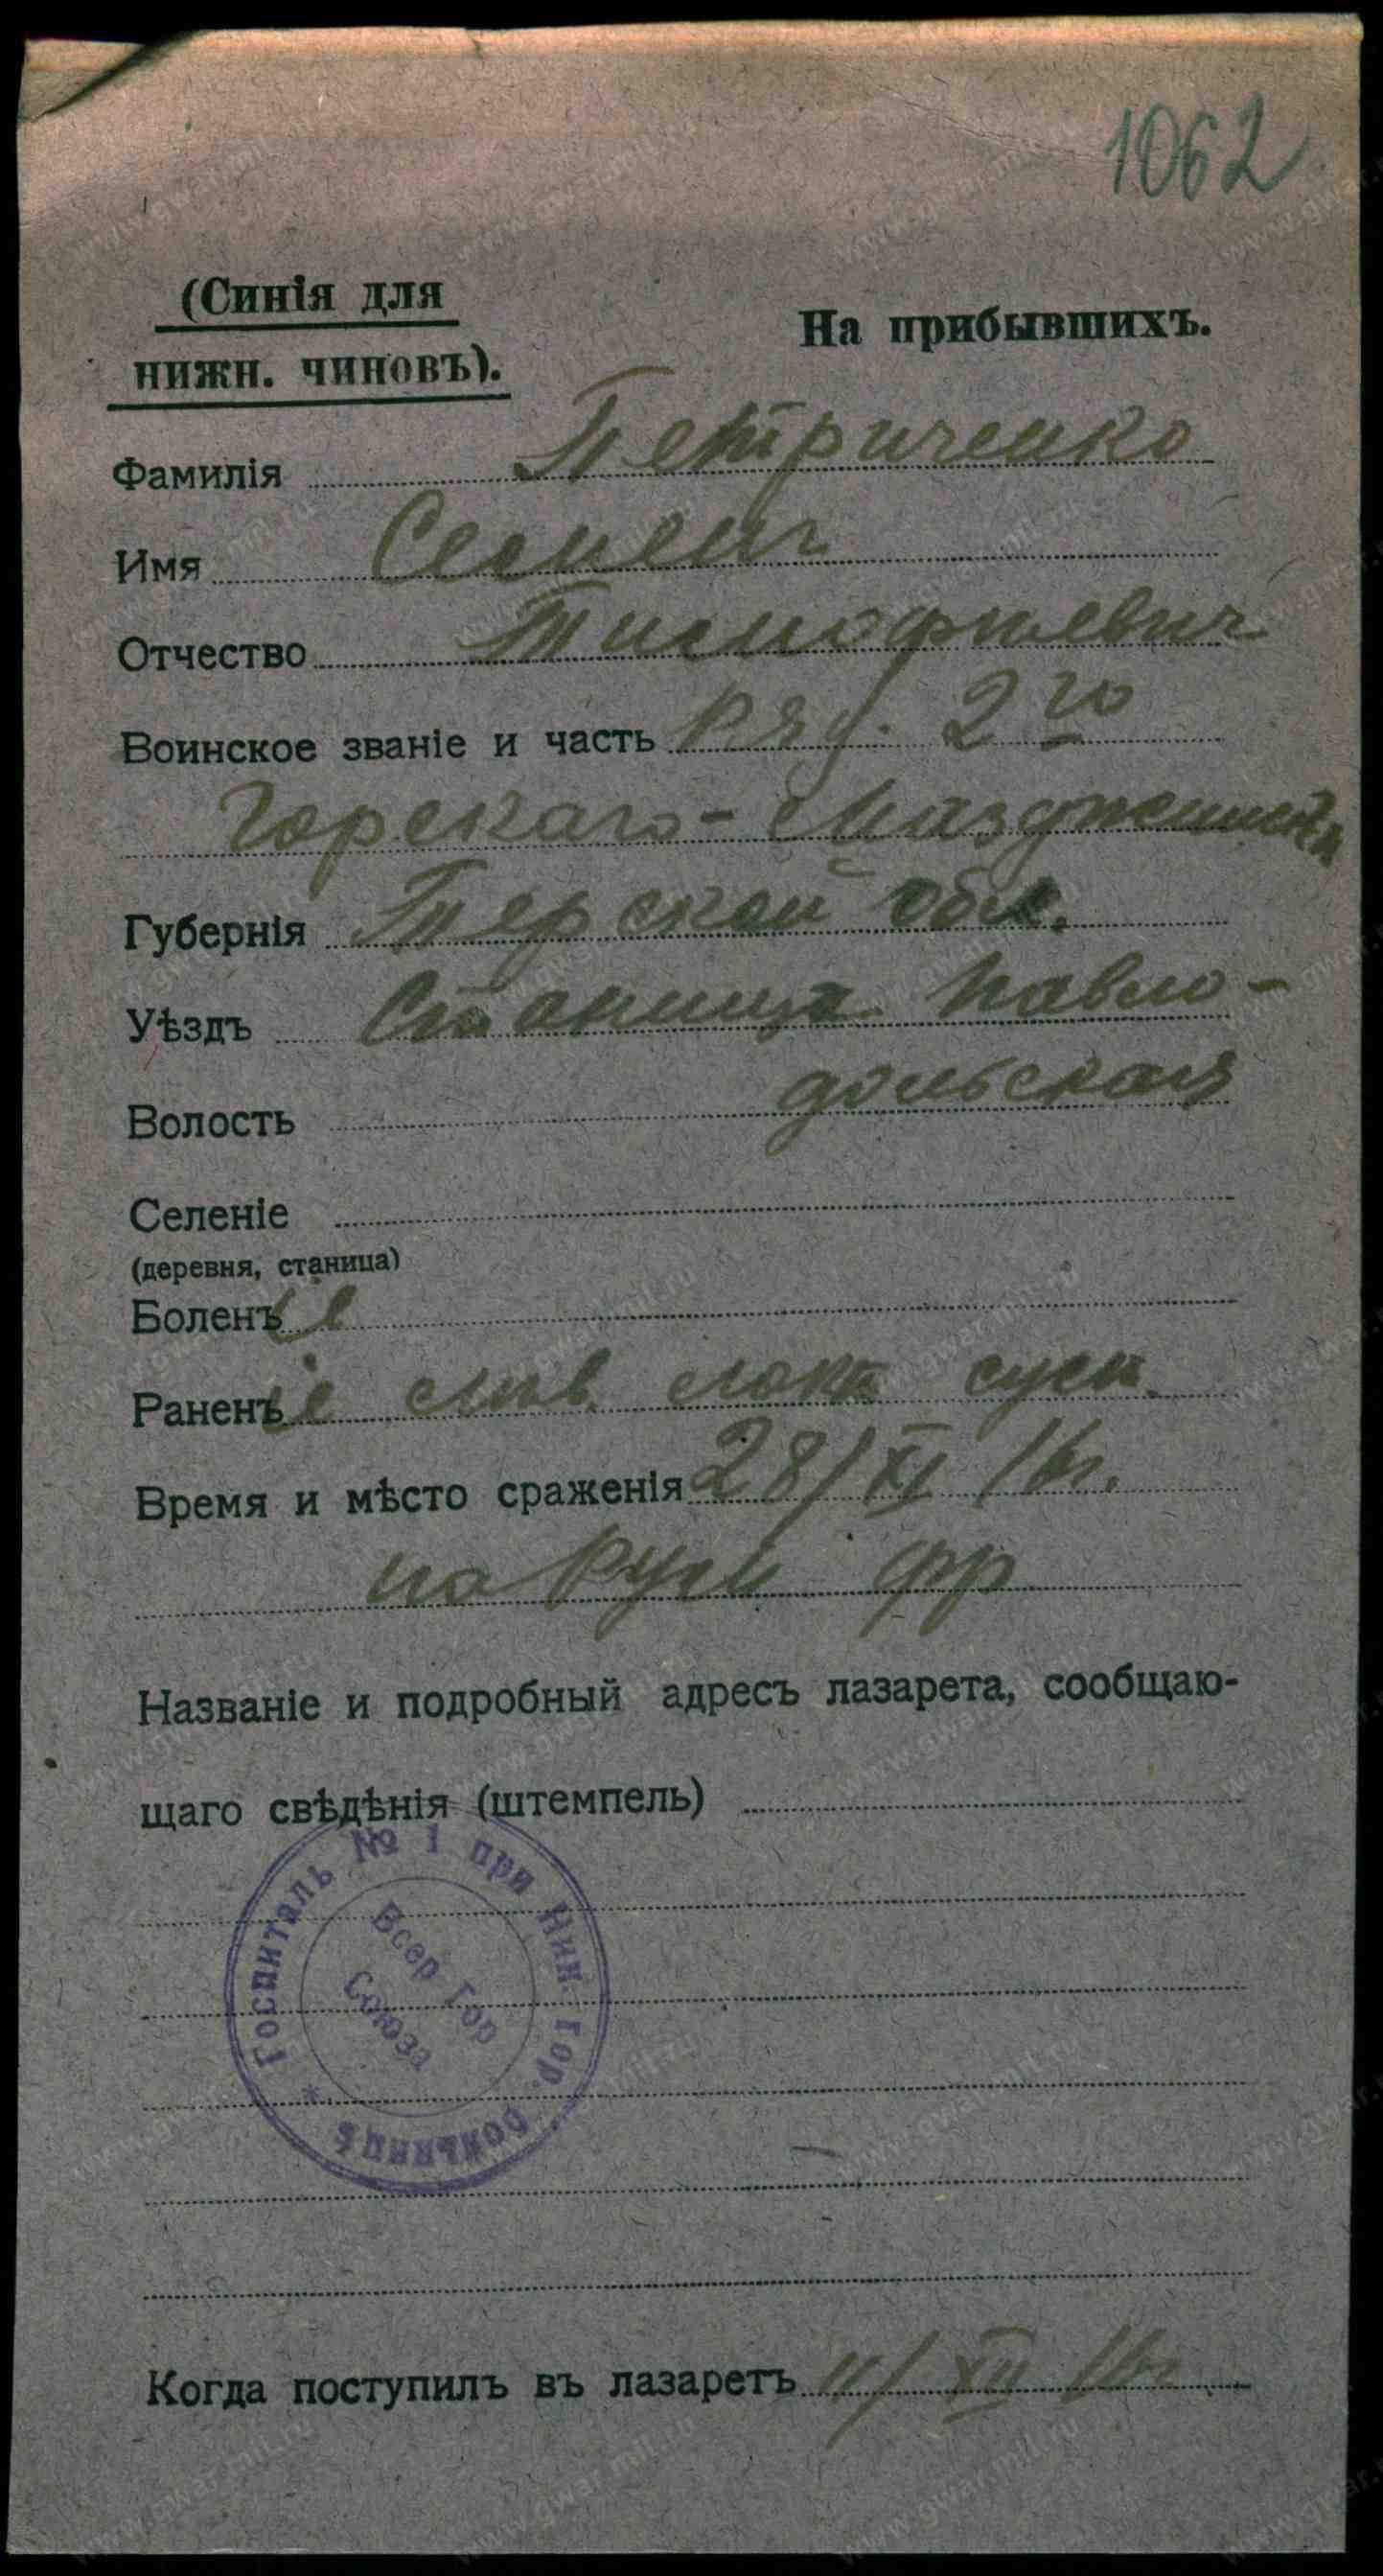 1062
(Синія для
нижн. чиновъ).
На прибывшихъ.
Фамилія Петриченко
Имя Семенъ
Отчество Тимофиевич
Воинское званіе и часть Ряд. 2го
Горскаго-Маздокскаго
Губернія Терской обл.
Уѣздъ Станица Павло-
Волость дольская
Селеніе
(деревня, станица)
Боленъ
Раненъ лѣв. локт суст.
Время и мѣсто сраженія 28/XI 16г.
на Рум фр
Названіе и подробный адресъ лазарета, сообщаю-
щаго свѣдѣнія (штемпель)
Госпиталь № 1 при Ник. Гор. больницѣ
Всер Гор
Союза
Когда поступилъ въ лазаретъ 11/XII 16г